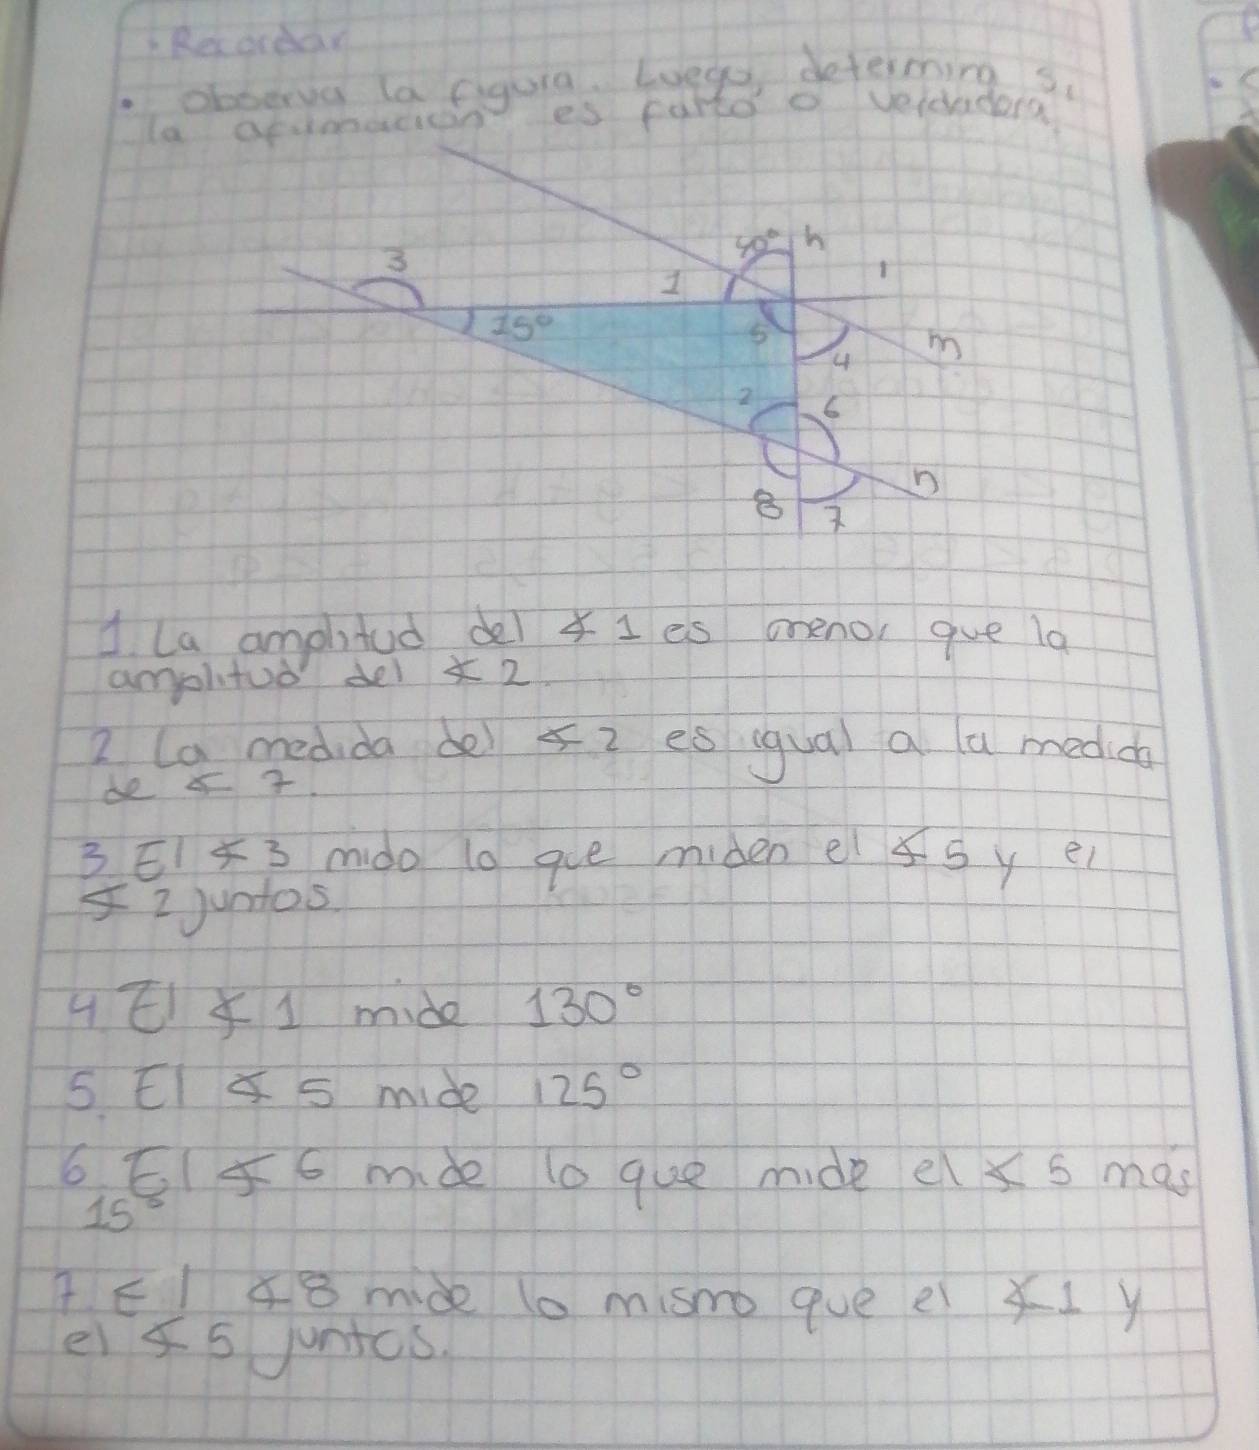 Recordar
• Observa la figura. Luego, determina si
la afirmación es falso o verdadera
90° h
3
1
1
15°
5
m
4
2
6
n
8
7
1. La amplitud del ∡ 1 es menor que la
amplitud del ∡ 2
2 La medida del ∡ 2 es igual a la medida
de ∡ 7.
3 El ∡ 3 mido lo que miden el ∡ 5 y el
∡ 2 juntos.
4 El ∡ 1 mide 130°
5. El ∡ 5 mide 125°
6 El ∡ 6 mide lo que mide el ∡ 5 más
15°
7. El ∡ 8 mide lo mismo que el ∡ 1 y
el ∡ 5 juntos.